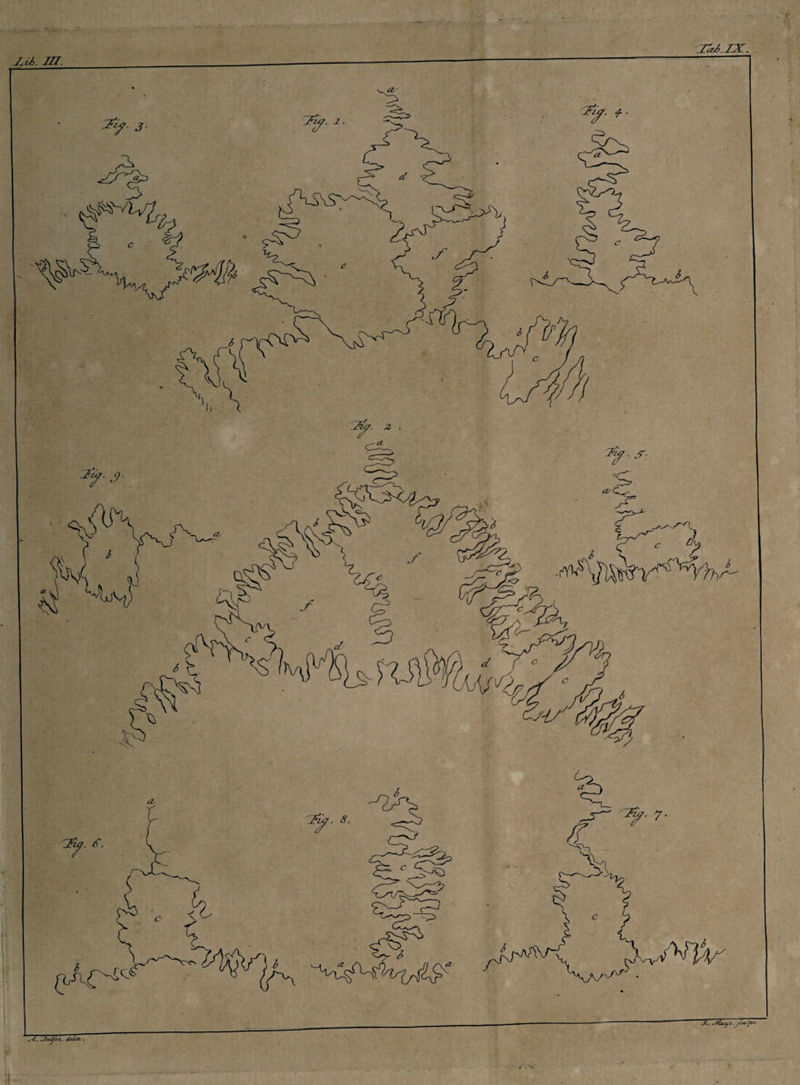 Lib. III.
Tab. IX.
Fig. 3.
Fig. 1.
Fig. 4.
a
a
a
d
c
e
f
c
b
b
b
b
c
Fig. 2.
Fig. 9.
Fig. 5.
a
a
a
b
b
b
c
f
f
c
b
b
c
d
d
c
c
b
b
Fig. 6.
Fig. 8.
Fig. 7.
a
b
a
c
c
c
b
b
b
a
a
b
b
delin.
sculps.